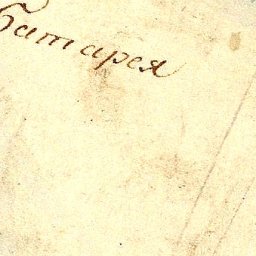 Батарея